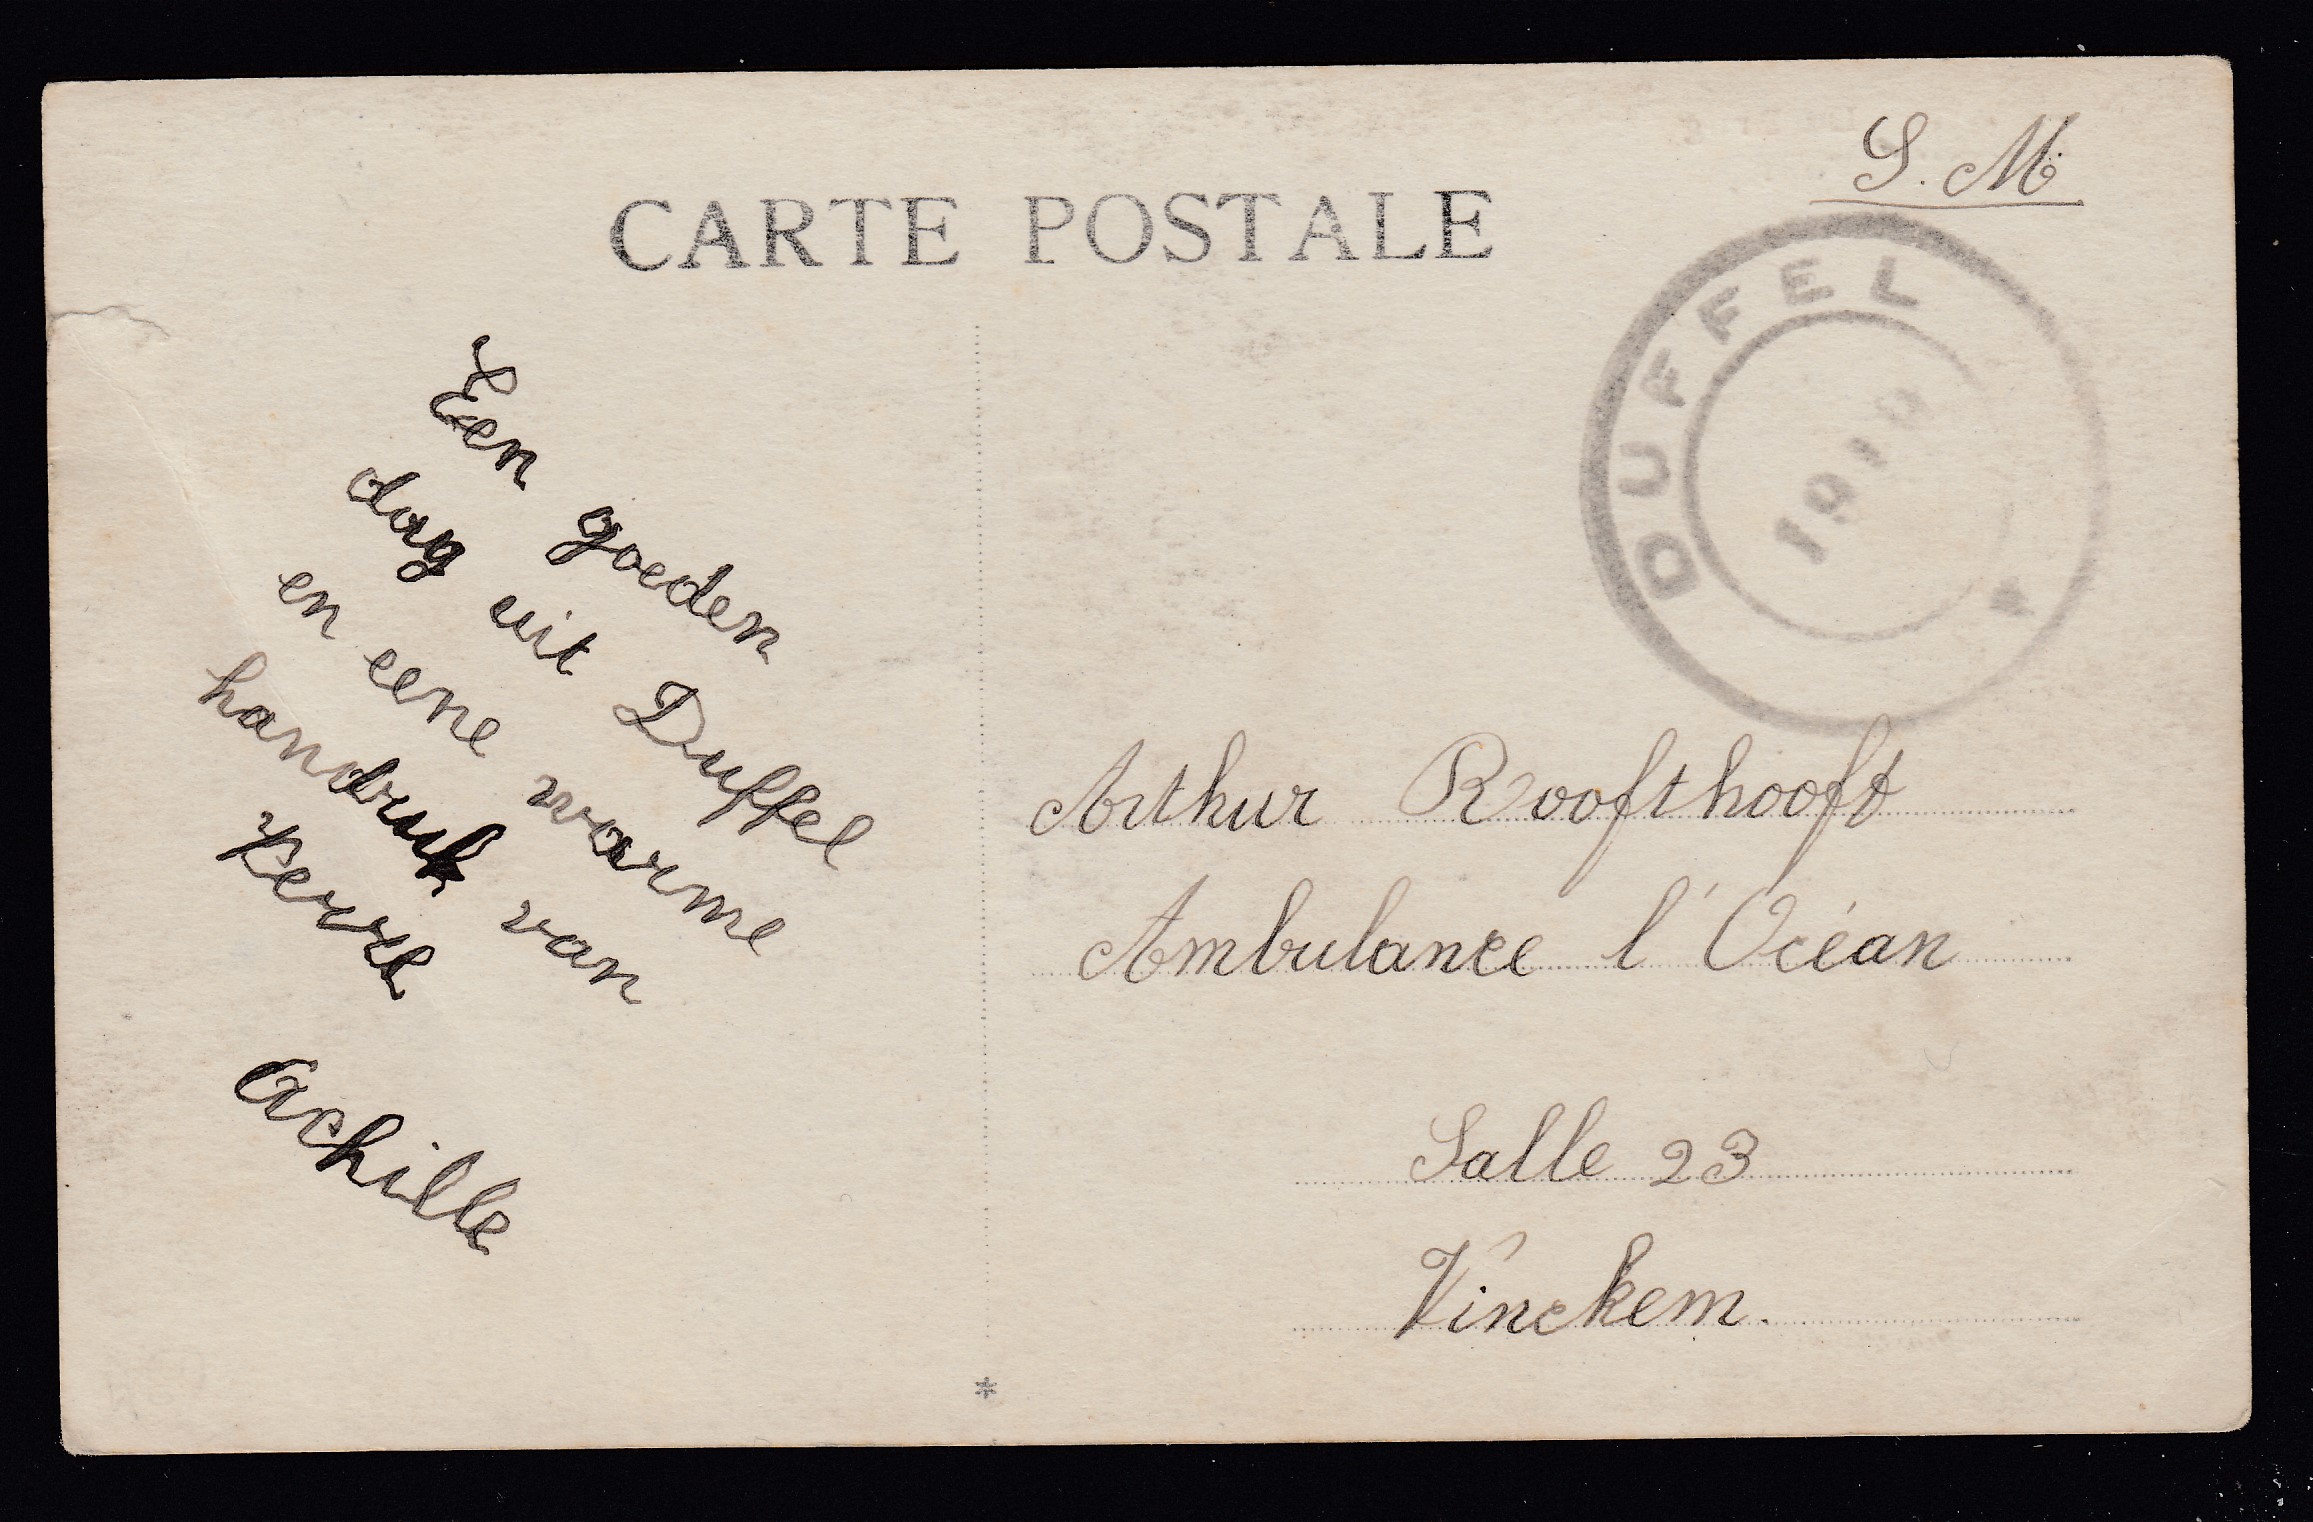 S.M
CARTE POSTALE
DUFFEL
1919
Een goeden
dag uit Duffel
en eene warme
handruk van
Achille
Arthur Roofthooft
Ambulance l'Océan
Salle 23
Vinckem.
*